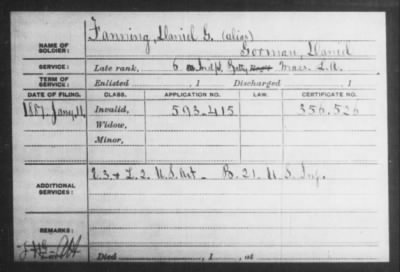 NAME OF SOLDIER: Fanning, Daniel G. (alias)
Gorman, Daniel
SERVICE: Late rank, 6 Indpt. Batty Mass. L.A.
TERM OF SERVICE: Enlisted , 1 Discharged , 1
DATE OF FILING. CLASS. APPLICATION NO. LAW. CERTIFICATE NO.
1887. Jany, 11 Invalid, 593.415 356.526
Widow,
Minor,
ADDITIONAL SERVICES: E. 3 + L. 2. U.S. Art - B. 21. U.S. Inf.
REMARKS:
Died , 1 , at